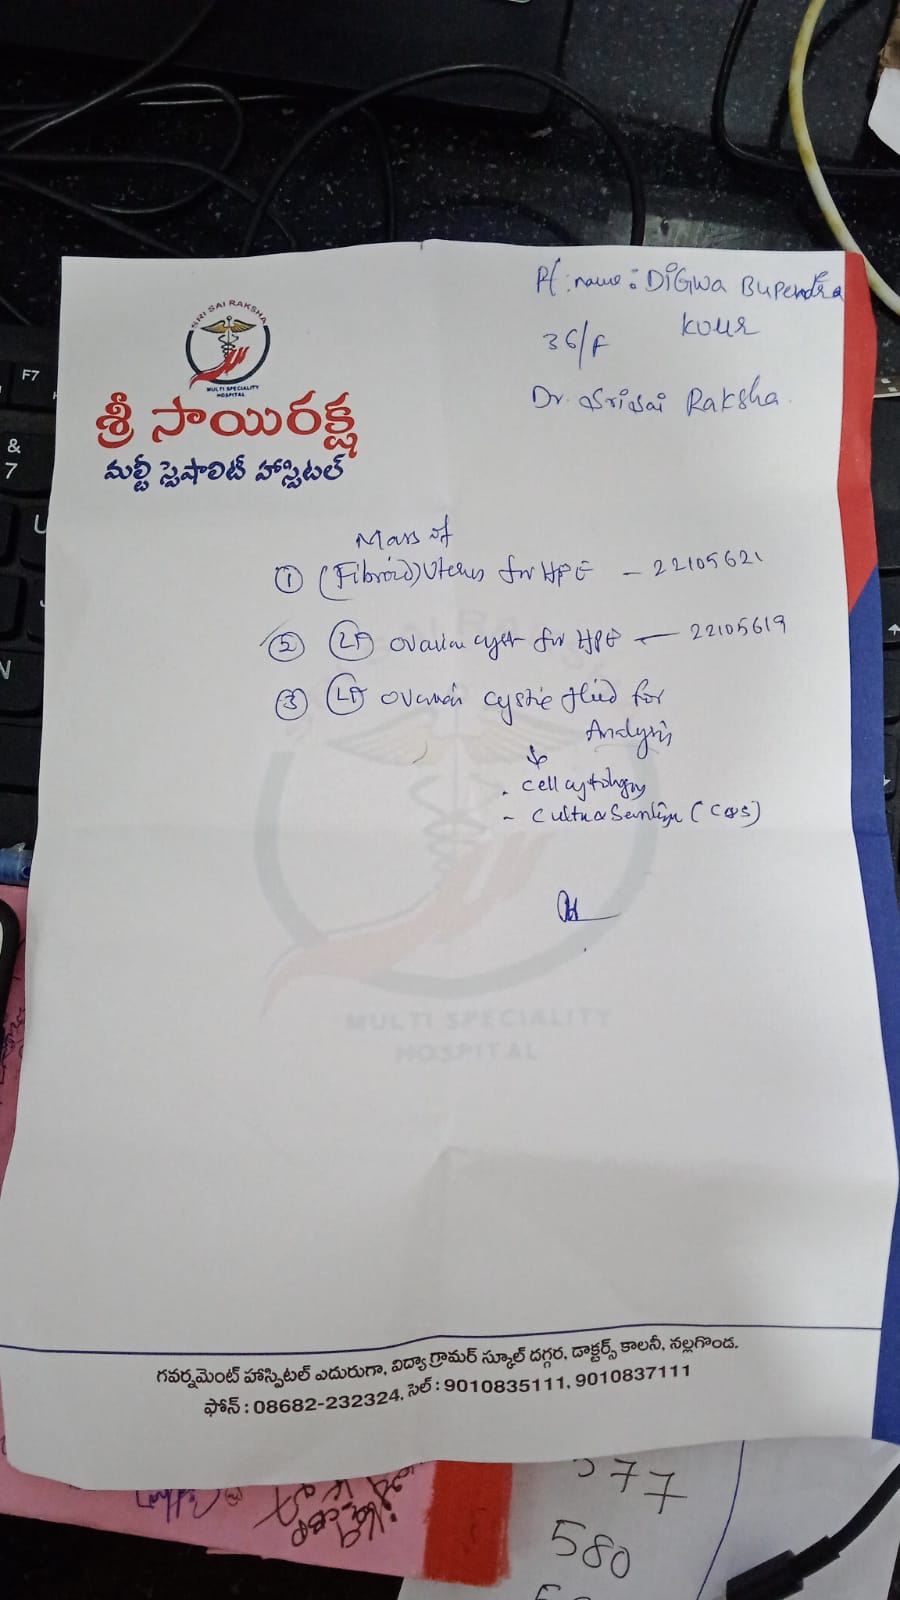 F7
&
7
U
N
SRI SAI RAKSHA
MULTI SPECIALITY
HOSPITAL
శ్రీ సాయిరక్ష
మల్టీ స్పెషాలిటీ హాస్పిటల్
Pt: name: DIGWA BUPENDRA
KOUR
36/F
Dr. Srisai Raksha.
Mass of
① (Fibroid) Uterus for HPE - 22105621
② Lt ovarian cyst for HPE - 22105619
③ Lt ovarian cystic fluid for
Analysis
. cell cytology
- Culture & (C&S)
MULTI SPECIALITY
HOSPITAL
గవర్నమెంట్ హాస్పిటల్ ఎదురుగా, విద్యా గ్రామర్ స్కూల్ దగ్గర, డాక్టర్స్ కాలనీ, నల్లగొండ.
ఫోన్ : 08682-232324, సెల్ : 9010835111, 9010837111
577
580